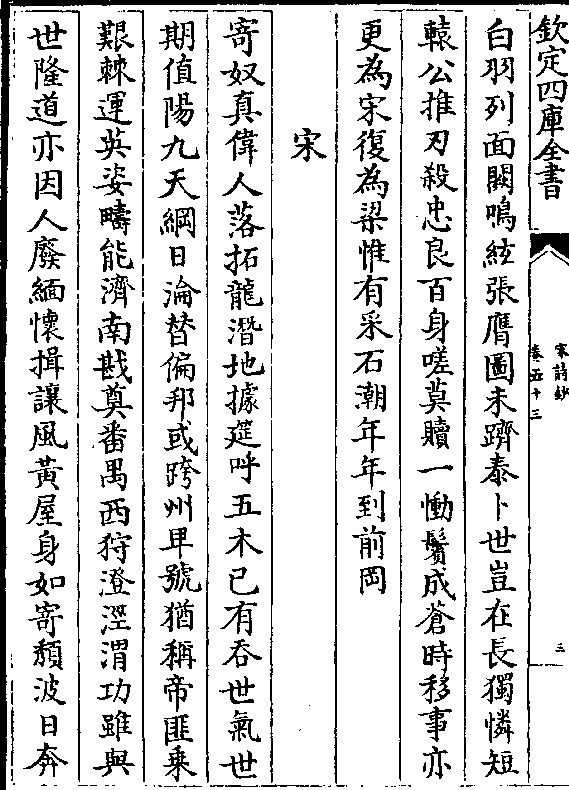 欽定四庫全書
宋詩鈔
卷五十三
三
白羽列面闕鳴絃張膺圖未躋泰卜世豈在長獨憐短
轅公推刃殺忠良百身嗟莫贖一慟鬢成蒼時移事亦
更為宋復為梁惟有采石潮年年到前岡
宋
寄奴真偉人落拓龍潛地據筵呼五木已有吞世氣世
期值陽九天綱日淪替偏邦或跨州卑號猶稱帝匪乗
艱棘運英姿疇能濟南戡奠番禺西狩澄涇渭功雖與
世隆道亦因人廢緬懷揖讓風黃屋身如寄頽波日奔